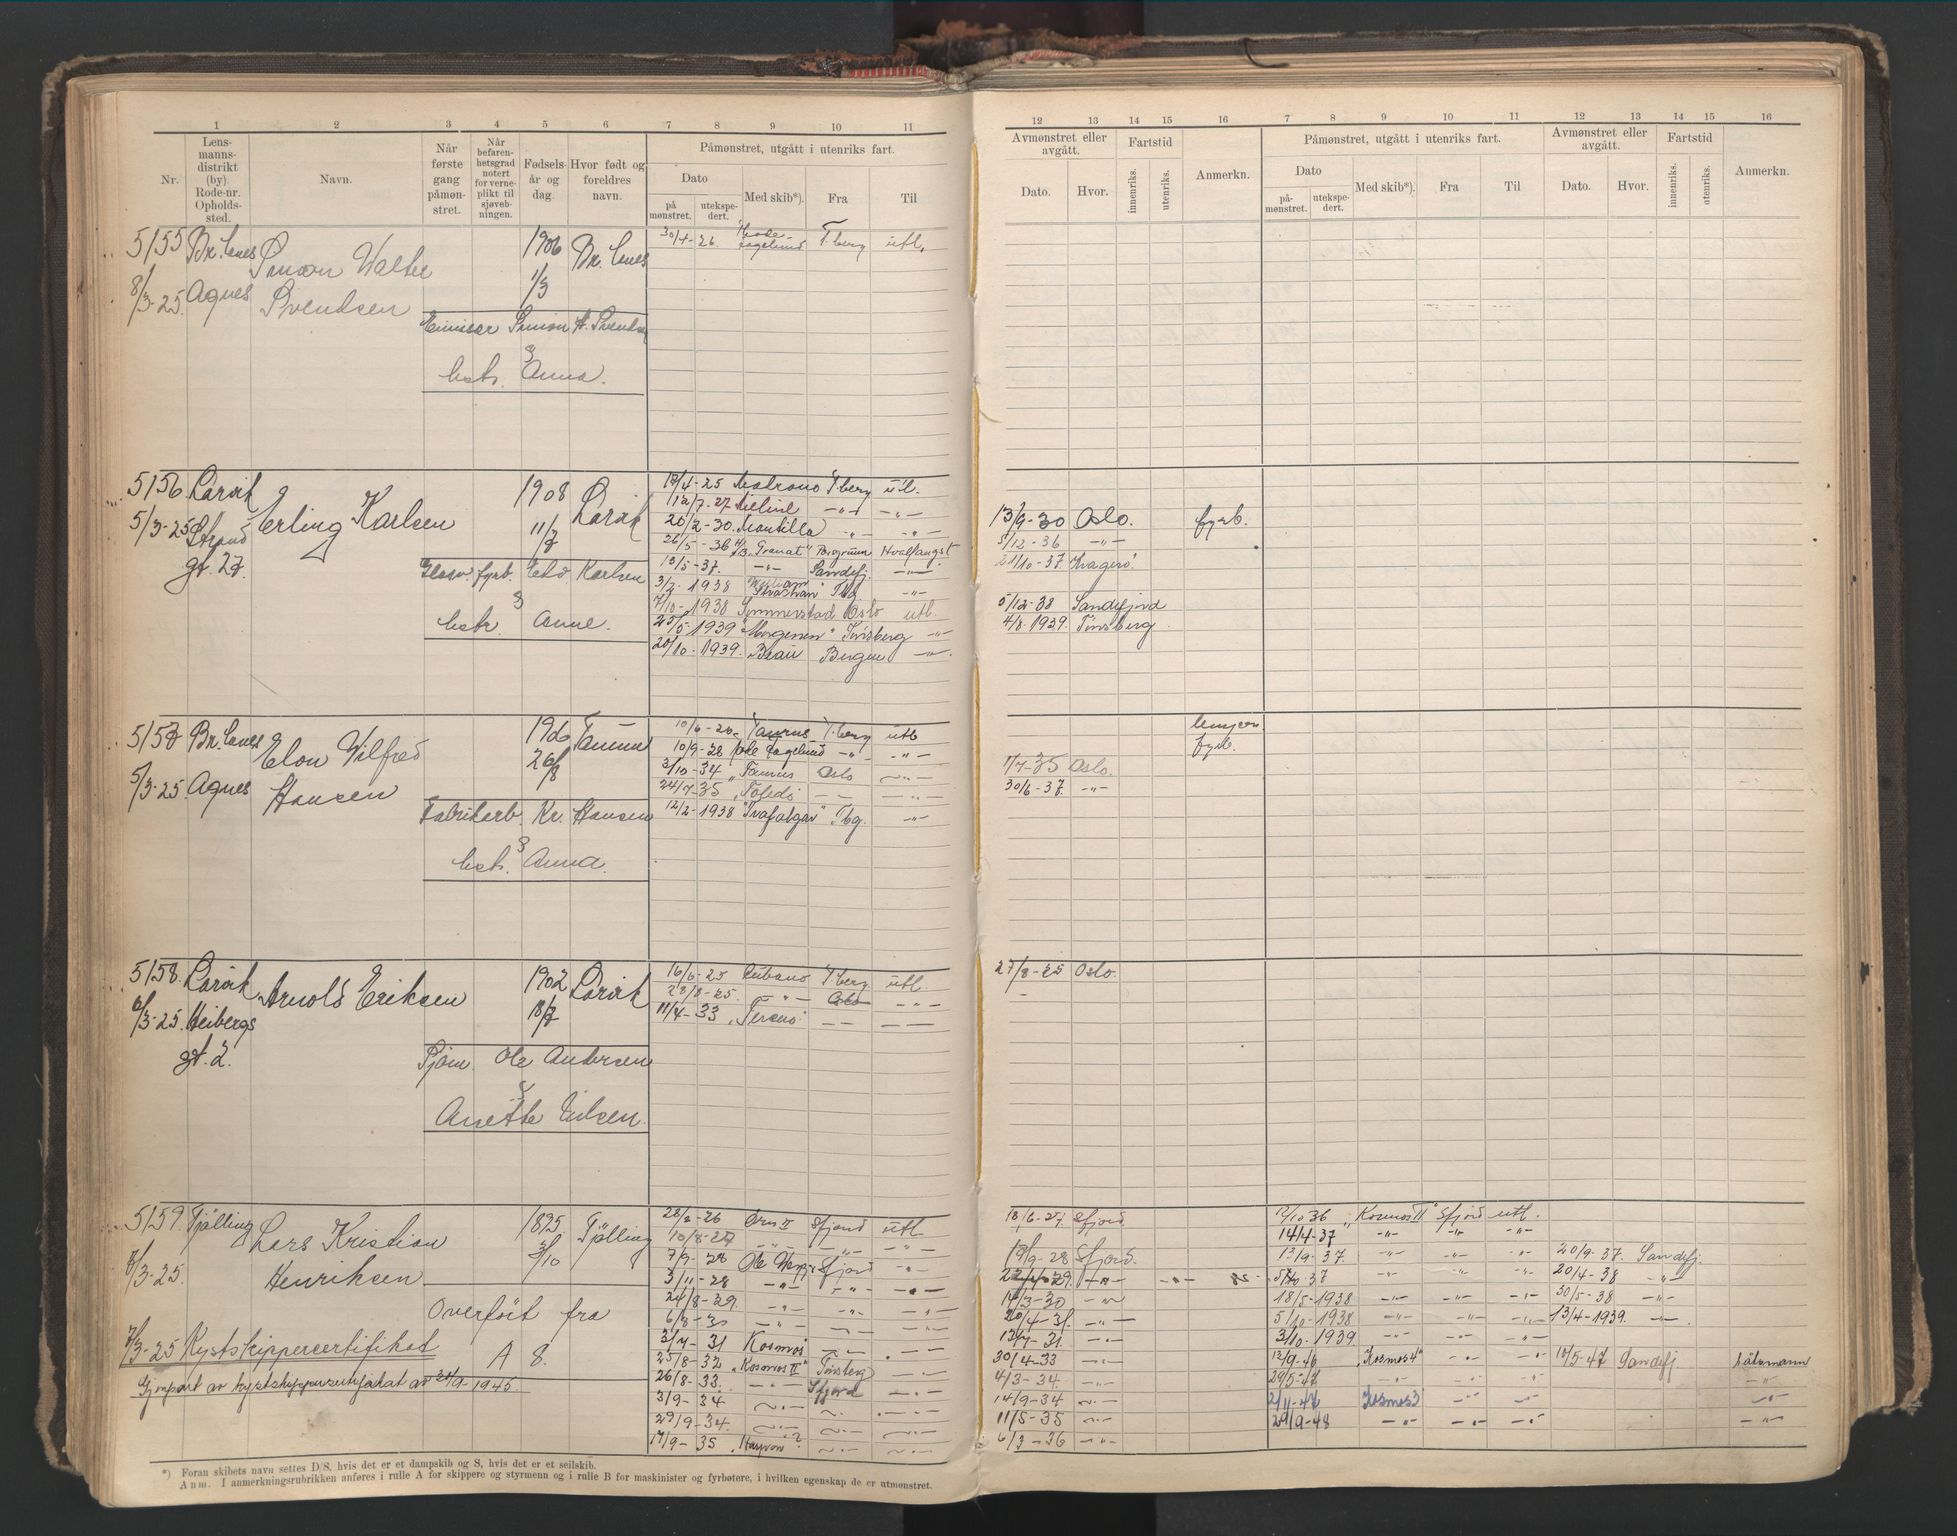 1 2 3 4 5 6 7 8 9 10 11
Nr. Lensmannsdistrikt (by). Rode-nr. Opholdssted. Navn. Når første gang påmønstret. Når befarenhetsgrad notert for verneplikt til sjøvebningen. Fødselsår og dag. Hvor født og foreldres navn.
Påmønstret, utgått i utenriks fart.
Dato
på mønstret. utekspedert. Med skib*). Fra Til
12 13 14 15 16 7 8 9 10 11 12 13 14 15 16
Avmønstret eller avgått. Fartstid
Dato. Hvor. innenriks. utenriks. Anmerkn.
Påmønstret, utgått i utenriks fart.
Dato
påmønstret. utekspedert. Med skib*). Fra Til
Avmønstret eller avgått. Fartstid
Dato. Hvor. innenriks. utenriks. Anmerkn.
5155 Br.lanes Simon Walbe 1906 Br. lanes 30/4-26 T.berg utl.
8/3-25. Agnes Svendsen 1/3
Simon A. Svendsen
&
hstr. Anna.
5156 Larvik Erling Karlsen 1908 Larvik
5/3-25 Strand 11/7
gt. 27
fyrb. Karlsen
&
hstr. Anne
/4-25 T.berg utl.
12/7-27 -"- -"-
20/2-30. Mantilla -"- -"-
26/5-36 "Granat" Hvalfangst
10/5-37. -"- Sandefj. -"-
3/2-1938 Tbg -"-
7/10-1938 Oslo utl.
25/5 1939 "Morgenen" Tønsberg -"-
20/10.1939. Bergen -"-
13/9-30 Oslo. fyrb.
5/12-36 -"-
21/10-37 Kragerö.
5/12-38 Sandefjord
4/8.1939. Tønsberg.
5157 Br.lanes Wilfred 1906
5/3-25. Agnes Hansen 26/8
Fabrikarb. Kr. Hansen
&
hstr. Anna.
"Taurus T.berg utl
10/9-28 -"- -"-
3/10-34 "Taurus Oslo -"-
24/7-35 "Toledo — —
12/2-1938 "Trafalgar" Tbg. -"-
fyrb.
7/7-35 Oslo.
30/6-37. -"-
5158. Larvik Arnold Eriksen 1902 Larvik
6/3-25. Heibergs 18/7
gt. 2.
Sjøm. Ole Andersen
&
Anette
16/6-25 Cubano T.berg utl.
28/8-25. -"- Oslo -"-
11/4-33 — —
27/8-25 Oslo.
5159. Tjølling Lars Kristian 1895 Tjølling
7/3-25. Henriksen 3/10
Overført fra
A 8.
7/3-25 Kystskippercertifikat
Gjenpart av kystskippersertifikat av 24/9-1945.
28/2-26 Ørn II Sfjord utl.
10/8-27 -"- -"- -"-
7/9-28 Ole Sfjord -"-
3/11-28 -"- -"- -"-
24/8-29. -"- -"- -"-
6/8-30 -"- -"- -"-
3/7-31 Kosmos -"- -"-
25/8-32 "Kosmos II" Tønsberg -"-
26/8-33. -"- Sfjord -"-
3/9-34 -"- -"- -"-
29/9-34. -"- -"- -"-
17/9-35 -"- -"-
18/6-27 Sfjord
18/9-28 Sfjord.
-"- -"-
14/3-30 -"-
20/4-31. -"-
13/7-31. -"-
30/4-33 -"-
4/3-34. -"-
14/9-34 -"-
11/5-35 -"-
6/3-36 -"-
12/10 36 "Kosmos II" Sfjord utl.
14/4-37 -"- -"- -"-
13/9-37. -"- -"- -"- 20/9-37. Sandefj.
-"- -"- -"- 20/4-38 -"-
18/5-1938 -"- -"- -"- 30/5-38 -"-
5/10-1938 -"- -"- -"- 13/4-1939. -"-
3/10.1939. -"- -"- -"-
12/9-46 "Kosmos 4" -"- -"- 10/5-47 Sandefj. båtsmann
29/5-47 -"- -"- -"- -"-
2/11-47 Kosmos 3 -"- -"- -"-
29/9-48 -"- -"- -"- -"-
*) Foran skibets navn settes D/S, hvis det er et dampskib og S, hvis det er et seilskib.
Anm. I anmerkningsrubrikken anføres i rulle A for skippere og styrmenn og i rulle B for maskinister og fyrbøtere, i hvilken egenskap de er utmønstret.